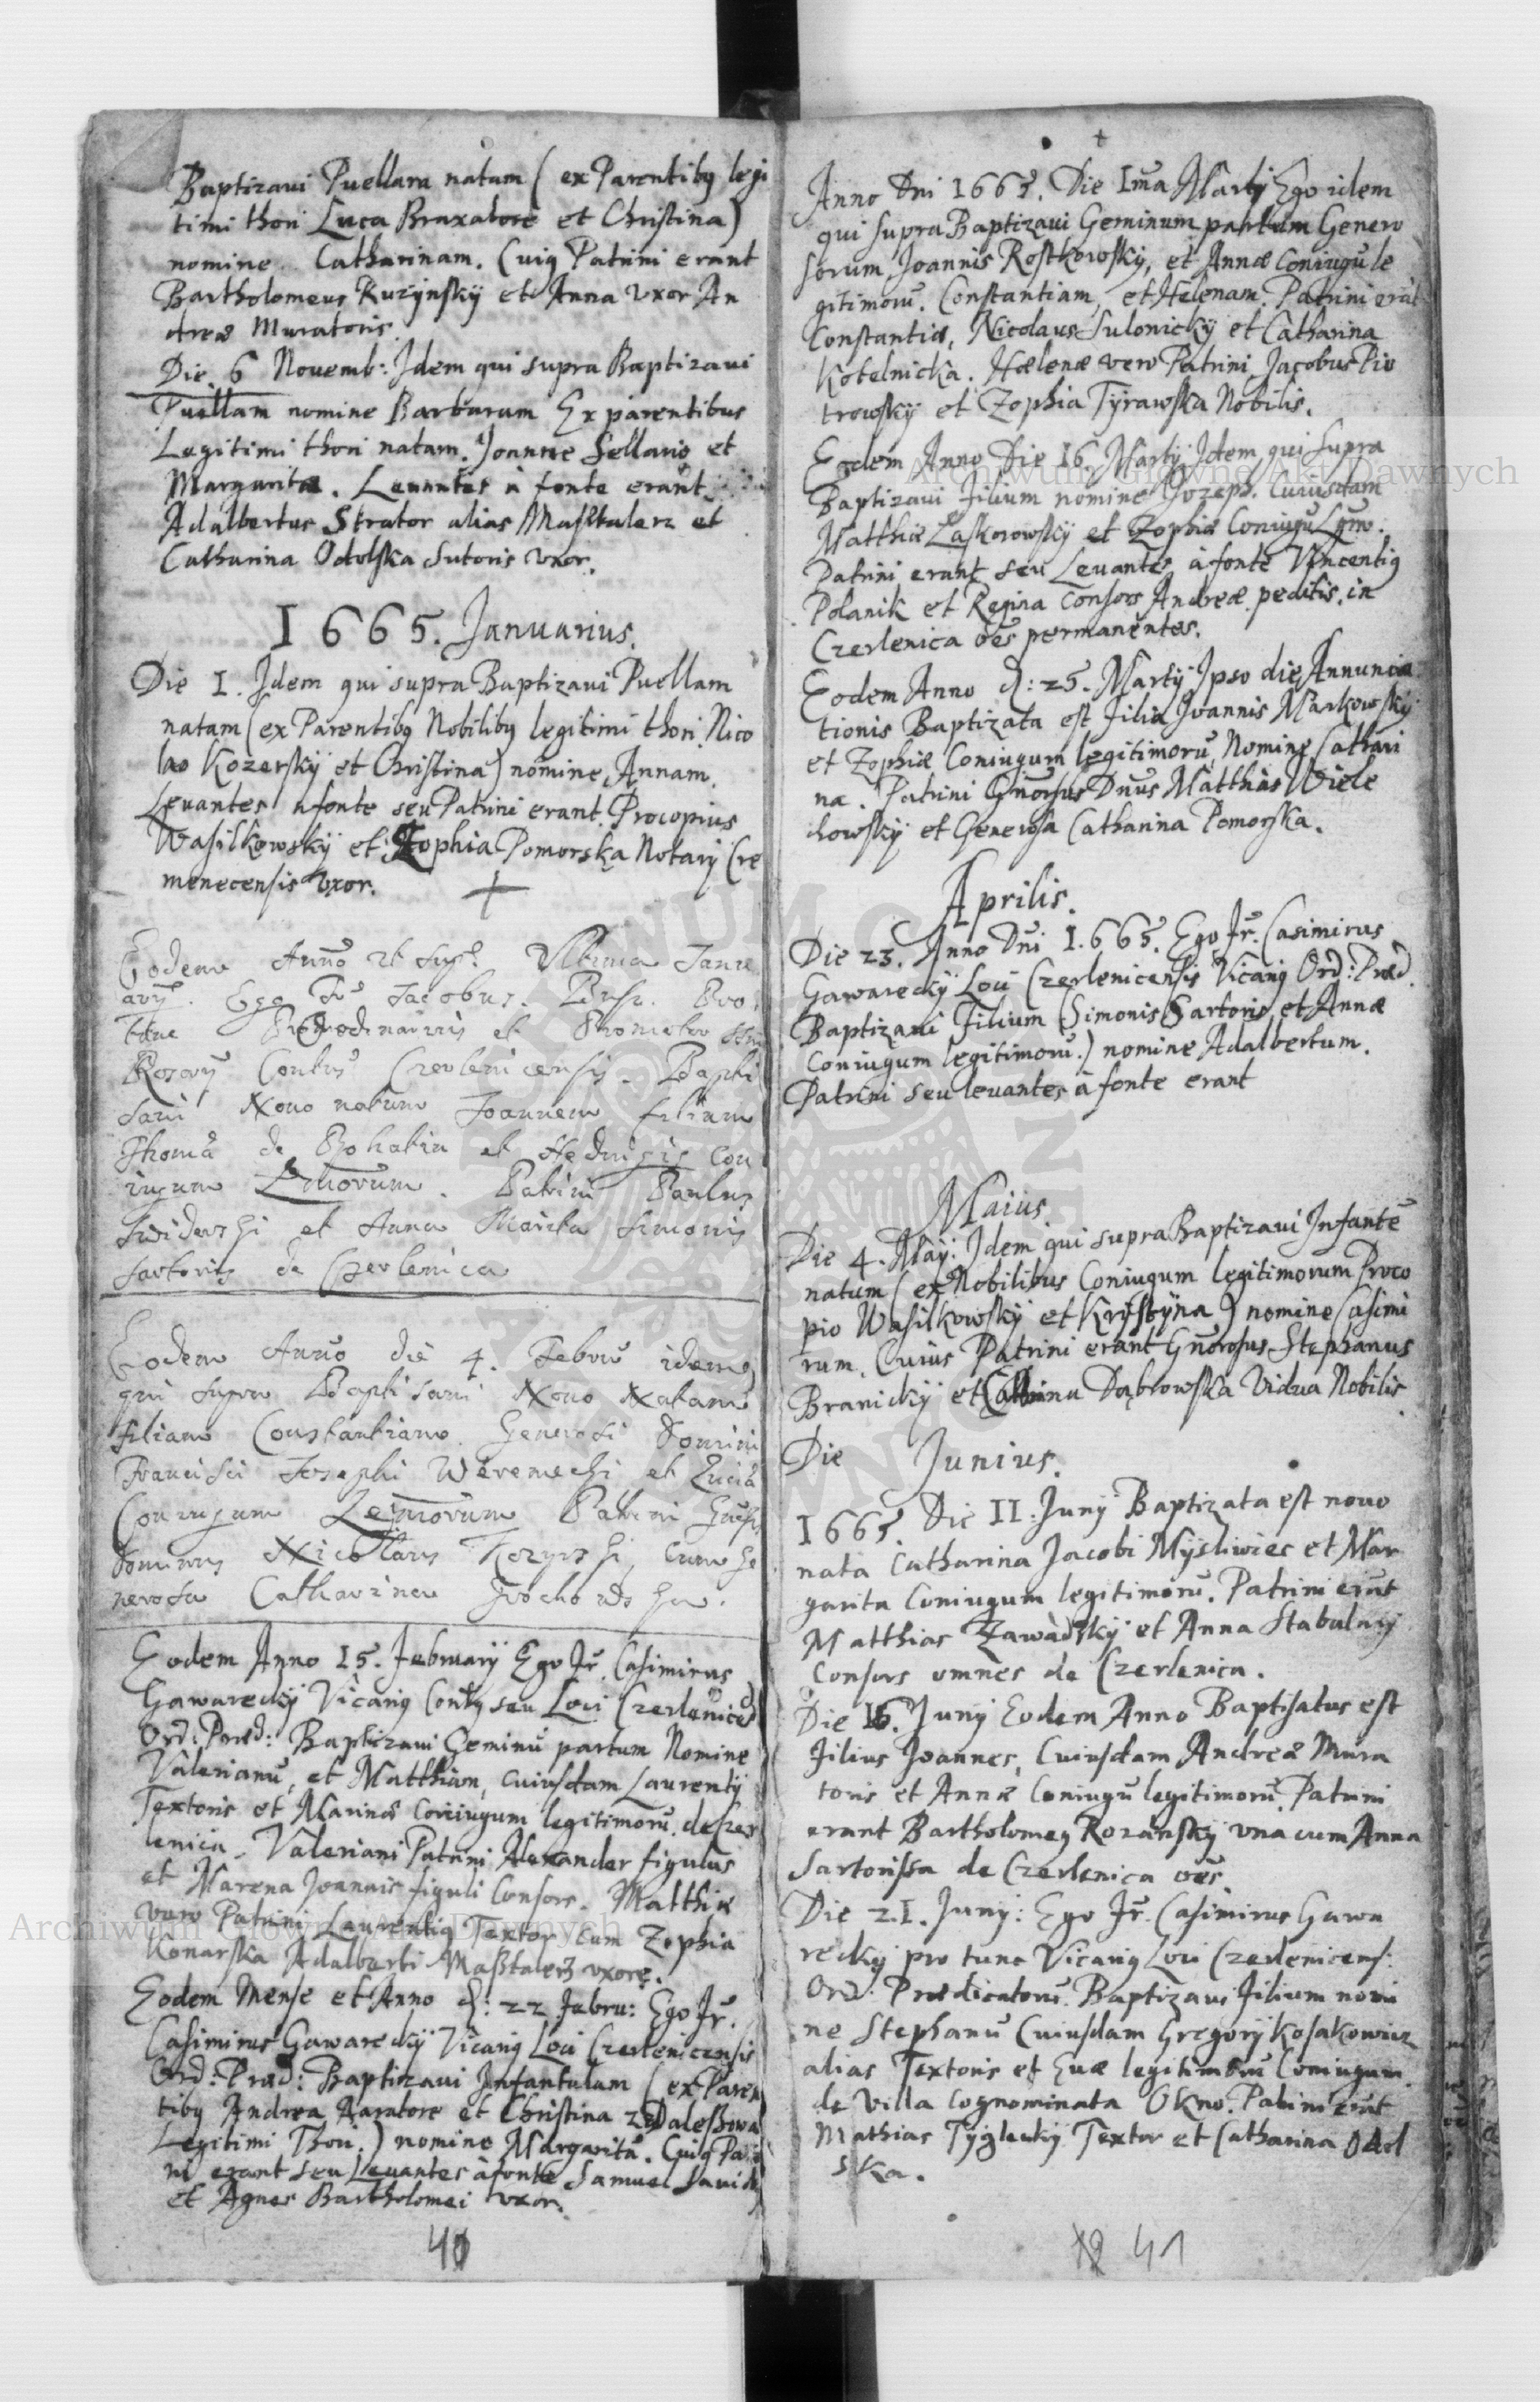 Baptizavi Puellam natam ( ex Parentibg legi
timi thori Luca Braxatore et Christina)
nomine Catharinam. Cuig Patrini erant
Bartholomeus Kuzynsky et Anna Uxor An
dreæ Muratoris.
Die 6 Novemb: Idem qui supra Baptizavi
Puellam nomine Barbaram Ex parentibus
Legitimi thori natam. Joanne Sellario et
Margarita. Levantes à fonte erant
Adalbertus Strator alias Masztalerz et
Catharina Odolska Sutoris uxor.
1665. Januarius.
Die 1. Idem qui supra Baptizavi Puellam
natam (ex Parentibg Nobilibg legitimi thori Nico
lao Kozersky et Christina) nomine Annam.
Levantes a fonte seu Patrini erant. Procopius
Wasilkowsky et Zophia Pomorska Notarij Cre
menecensis Uxor.
Eodem Anno ut sup. Ultima Janu
arij. Ego Fr Jacobus
tunc et Promotor
Rosarij Contus Czerlenicensis. Bapti
savi Novo natum Joannem filium
Thomæ de Rohatin et Hedvigis Con
iugum Lmorum. Patrini Paulus
Swiderski et Anna Marita Simonis
Sartoris de Czerlenica
Eodem Anno die 4. Febru idem
qui supra Baptisavi Novo Natam
filiam Constantiam Generosi Domini
Francisci Josephi Weremecki et Luciæ
Coniugum Legmorum Patrini
Dominus Nicolaus Kozyrski cum Ge
nerosa Catharina Grochowska.
Eodem Anno 15. February Ego Fr. Casimirus
Gawarecky Vicarig Contg seu Loci Czerlenicen
Ord: Præd: Baptizavi Geminu partum Nomine
Valerianu, et Matthiam, cuiusdam Laurentij
Textoris et Marinæ coniugum legitimoru. de Czer
lenica. Valeriani Patrini Alexander figulus
et Marena Joannis figuli Consors. Matthiæ
vero Patrini Laurentig Textor cum Zophia
Konarska Adalberti Masztalerz uxore.
Eodem Mense et Anno d: 22 Febru: Ego Fr.
Casimirus Gawarecky Vicarig Loci Czerlenicensis
Ord: Præd: Baptizavi Infantulam (ex Paren
tibg Andrea Aaratore et Christina z Daleszowa
Legitimi Thori.) nomine Margaritā. Cuig Patri
ni erant seu Levantes à fonte Samuel
et Agnes Bartholomei uxor.
40
Anno Dni 1665. Die 1ma Martij Ego idem
qui supra Baptizavi Geminum partum Genero
sorum Joannis Rostkowsky, et Annæ Coniugu le
gitimoru. Constantiam, et Helenam. Patrini erāt
Constantiæ, Nicolaus Sulonicky et Catharina
Kotelnicka. Hælenæ vero Patrini Jacobus Pio
trowsky et Zophia Tyrawska Nobilis.
Eodem Anno Die 16. Martij Idem qui supra
Baptizavi Filium nomine Jozeph. Cuiusdam
Matthiæ Laskorowsky et Zophiæ Coniugu Lgmo.
Patrini erant seu Levantes à fonte Vincentig
Polanik et Regina Consors Andreæ peditis, in
Czerlenica oēs permanentes.
Eodem Anno d: 25. Martij Ipso die Annuncia
tionis Baptizata est Filia Joannis Markowsky
et Zophiæ Coniugum legitimoru, Nomine Cathari
na. Patrini Gnorosus Dnus Matthias Wiele
chowsky et Generosa Catharina Pomorska.
Aprilis.
Die 23. Anno Dni 1.665. Ego Fr. Casimirus
Gawarecky Loci Czerlenicensis Vicarig Ord: Præd.
Baptizavi Filium (Simonis Sartoris, et Annæ
Coniugum legitimoru.) nomine Adalbertum.
Patrini seu levantes à fonte erant
Maius
Die 4. May: Idem qui supra Baptizavi Infante
natum ( ex Nobilibus Coniugum legitimorum Proco
pio Wasilkowsky et Krystyna) nomine Casimi
rum. Cuius Patrini erant Gnorosus Stephanus
Branicky et Dąbrowska Vidua Nobilis
Die Junius.
1665. Die 11: Juny Baptizata est novo
nata Catharina Jacobi Mysliwiec et Mar
garita Coniugum legitimoru. Patrini erūt
Matthias Zawadsky et Anna Stabulary
Consors omnes de Czerlenica.
Die 16. Juny Eodem Anno Baptisatus est
Filius Joannes, Cuiusdam Andreæ Mura
toris et Annæ Coniugū legitimorū. Patrini
erant Bartholomeg Rozansky una cum Anna
Sartorissa de Czerlenica oēs.
Die 21. Juny: Ego Fr. Casimirus Gawa
recky pro tunc Vicarig Loci Czerlenicens:
Ord: Prædicatorū. Baptizavi Filium nomi
ne Stephanū Cuiusdam Gregory Kosakowicz
alias Textoris et Evæ legitimorū Coniugum
de Villa Cognominata Okno. Patrini erāt
Mathias Tyzlecky Textor et Catharina Odol
ska.
41
Archiwum Główne Akt Dawnych
Archiwum Główne Akt Dawnych